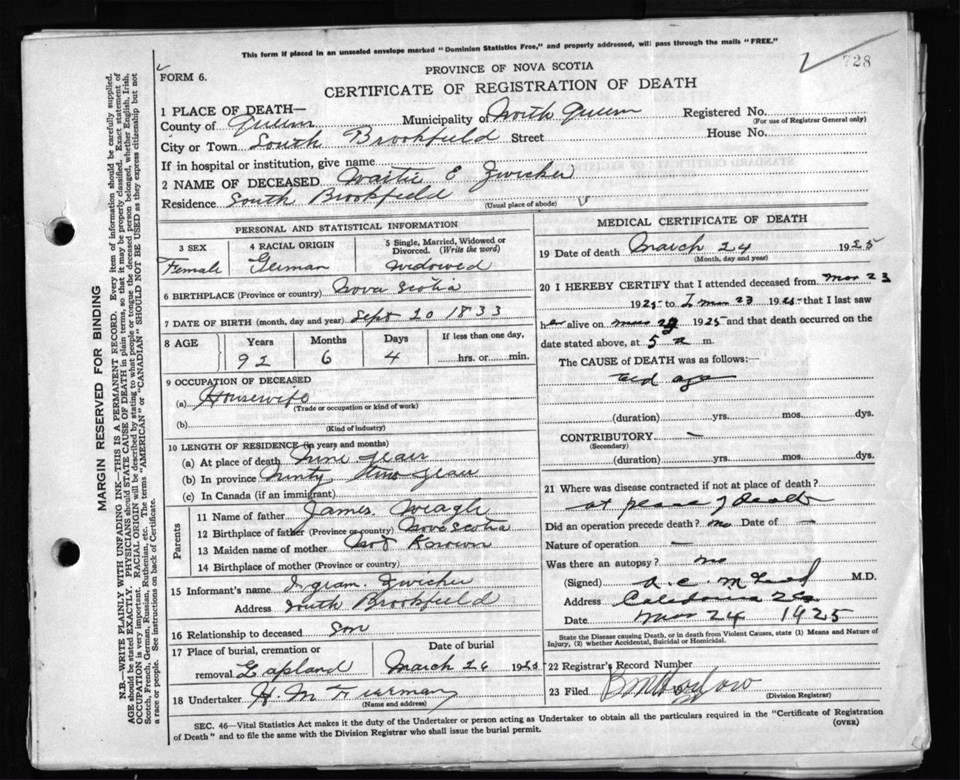 This form if placed in an unsealed envelope marked "Dominion Statistics Free," and properly addressed, will pass through the mails "FREE."
728
FORM 6.
PROVINCE OF NOVA SCOTIA
CERTIFICATE OF REGISTRATION OF DEATH
1 PLACE OF DEATH—
County of Queens Municipality of North Queens Registered No.
(For use of Registrar General only)
City or Town South Brookfield Street House No.
If in hospital or institution, give name
2 NAME OF DECEASED E Zwicker
Residence South Brookfield
(Usual place of abode)
PERSONAL AND STATISTICAL INFORMATION
3 SEX 4 RACIAL ORIGIN 5 Single, Married, Widowed or Divorced. (Write the word)
Female German widowed
6 BIRTHPLACE (Province or country) Nova Scotia
7 DATE OF BIRTH (month, day and year) Sept 20 1833
8 AGE Years Months Days If less than one day,
92 6 4 hrs. or min.
9 OCCUPATION OF DECEASED
(a) Housewife
(Trade or occupation or kind of work)
(b)
(Kind of industry)
10 LENGTH OF RESIDENCE (in years and months)
(a) At place of death nine years
(b) In province Ninty two years
(c) In Canada (if an immigrant)
Parents
11 Name of father James Weagle
12 Birthplace of father (Province or country) Nova Scotia
13 Maiden name of mother not Known
14 Birthplace of mother (Province or country)
15 Informant's name Ingram Zwicker
Address South Brookfield
16 Relationship to deceased Son
17 Place of burial, cremation or removal Lapland Date of burial March 26 1925
18 Undertaker H. M.
(Name and address)
MEDICAL CERTIFICATE OF DEATH
19 Date of death March 24 1925
(Month, day and year)
20 I HEREBY CERTIFY that I attended deceased from Mar 23
1925 to Mar 23 1925 that I last saw
her alive on Mar 23 1925 and that death occurred on the
date stated above, at 5 a m.
The CAUSE OF DEATH was as follows:—
old age
(duration) yrs. mos. dys.
CONTRIBUTORY —
(Secondary)
(duration) yrs. mos. dys.
21 Where was disease contracted if not at place of death?
at place of death
Did an operation precede death? no Date of —
Nature of operation —
Was there an autopsy? no
(Signed) A. C. M.D.
Address Caledonia
Date Mar 24 1925
State the Disease causing Death, or in death from Violent Causes, state (1) Means and Nature of Injury, (2) whether Accidental, Suicidal or Homicidal.
22 Registrar's Record Number
23 Filed
(Division Registrar)
SEC. 46—Vital Statistics Act makes it the duty of the Undertaker or person acting as Undertaker to obtain all the particulars required in the "Certificate of Registration
of Death" and to file the same with the Division Registrar who shall issue the burial permit.
(OVER)
MARGIN RESERVED FOR BINDING
N.B.—WRITE PLAINLY WITH UNFADING INK—THIS IS A PERMANENT RECORD. Every item of information should be carefully supplied.
AGE should be stated EXACTLY. PHYSICIANS should STATE CAUSE OF DEATH in plain terms, so that it may be properly classified. Exact statement of
OCCUPATION is very important. RACIAL ORIGIN will be described by stating to what people or tongue the deceased person belonged, whether English, Irish,
Scotch, French, German, Russian, Ruthenian, etc. The terms "AMERICAN" or "CANADIAN" SHOULD NOT BE USED as they express citizenship but not
a race or people. See instructions on back of Certificate.